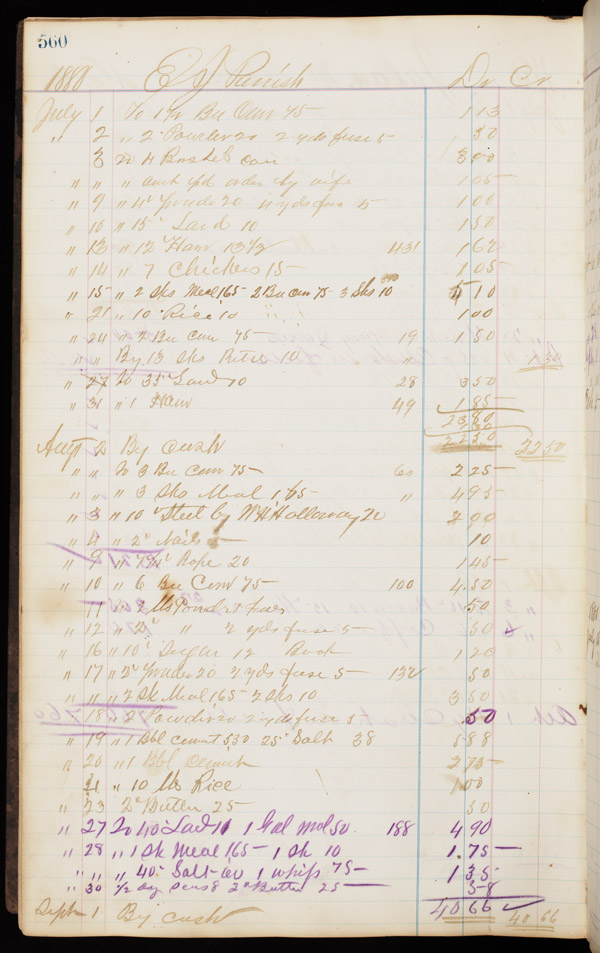 560
1880 E J Parish Dr Cr
July 1 To 1½ Bu Corn 75 1 13
" 2 " 2 Powder 20 2 yds fuse 5 50
3 20 4 Bushel Corn 3 00
" " " order by wife 1 05
" 9 " 4# Powder 20 4 yds fuse 5 1 00
" 10 " 15# Lard 10 1 50
" 13 " 12# Ham 13½ 431 1 62
" 14 " 7 Chickens 15 1 05
" 15 " 2 Sks Meal 165 2 Bu Corn 75 3 Sks 10 5 10
" 21 " 10 Rice 10 1 00
" 24 " 2 Bu Corn 75 19 1 50
" " By 13 Sks 10 " 1 30
" 27 To 35# Lard 10 28 3 50
" 31 " 1 Ham 49 1 85
23 80
1 30
22 50
Augt 2 By Cash 22 50
" " To 3 Bu Corn 75 60 2 25
" " " 3 Sks Meal 1 65 " 4 95
" 3 " 10# Steel by W H Holloway 20 2 00
" 4 " 2# Nails 5 10
" 9 " 7¼# Rope 20 1 45
" 10 " 6 Bu Corn 75 100 4.50
" 11 " 2 lbs Powder & fuse 50
" 12 " 2# " 2 yds fuse 5 50
" 16 " 10# Sugar 12 1 20
" 17 " 2# Powder 20 2 yds fuse 5 132 50
" " " 2 Sk Meal 165 2 Sks 10 3 50
" 18 " 2# Powder 20 2 yds fuse 5 50
" 19 " 1 Bbl cement 530 25# Salt 38 5 88
" 20 " 1 Bbl Cement 2 75
21 " 10 lbs Rice 1 00
" 23 2# Butter 25 50
" 27 To 40 Lard 11 1 Gal mol 50 188 4 90
" 28 " 1 Sk Meal 165 - 1 Sk 10 1.75
" " " 40# Salt 1 whip 75 1 35
" 30 ½ 8 2# Butter 25 58
40 66
Sept 1 By cash 40 66